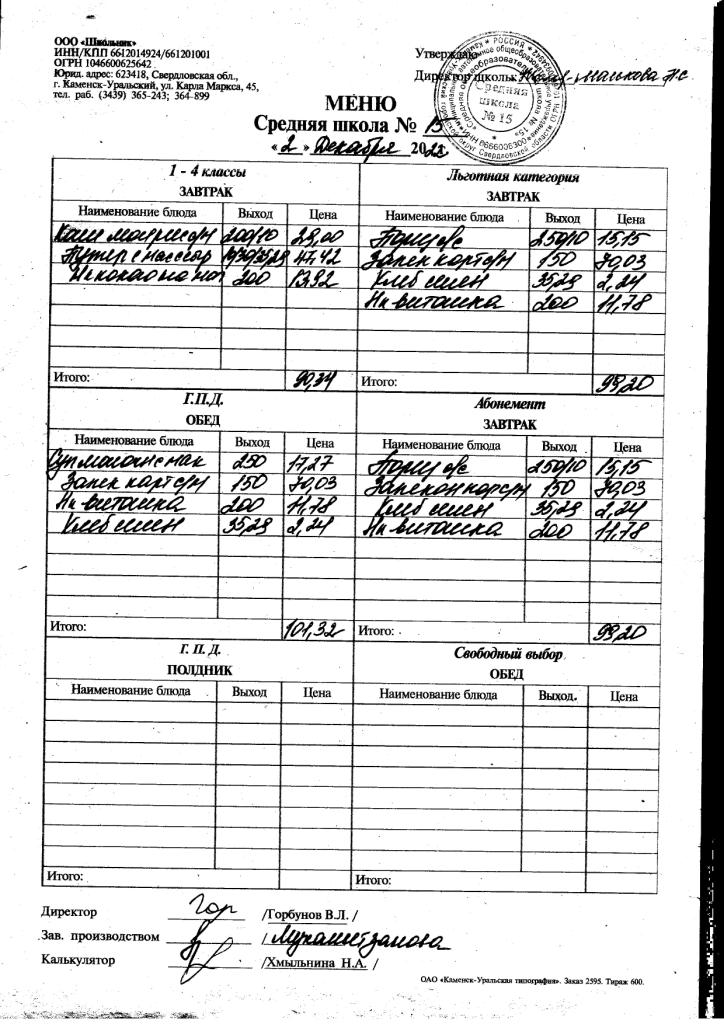 ООО «Школьник»
ИНН/КПП 6612014924/661201001
ОГРН 1046600625642
Юрид. адрес: 623418, Свердловская обл.,
г. Каменск-Уральский, ул. Карла Маркса, 45,
тел. раб. (3439) 365-243; 364-899
Утверждаю
Директор школы
Средняя школа № 15
МЕНЮ
Средняя школа № 15
«2» Декабря 2022
1 - 4 классы
ЗАВТРАК
Наименование блюда Выход Цена
Каша 200/10 29,00
47,42
200 13,92
Итого: 90,34
Льготная категория
ЗАВТРАК
Наименование блюда Выход Цена
250/10 15,15
Запек карт 150 70,03
Хлеб 35,29 2,24
Нк витошка 200 11,78
Итого: 99,20
Г.П.Д.
ОБЕД
Наименование блюда Выход Цена
Суп 250 17,27
Запек карт 150 70,03
Нк витошка 200 11,78
Хлеб 35,29 2,24
Итого: 101,32
Абонемент
ЗАВТРАК
Наименование блюда Выход Цена
250/10 15,15
150 70,03
Хлеб 35,29 2,24
Нк витошка 200 11,78
Итого: 99,20
Г. П. Д.
ПОЛДНИК
Наименование блюда Выход Цена
Итого:
Свободный выбор
ОБЕД
Наименование блюда Выход. Цена
Итого:
Директор /Горбунов В.Л. /
Зав. производством /
Калькулятор /Хмыльнина Н.А. /
ОАО «Каменск-Уральская типография». Заказ 2595. Тираж 600.